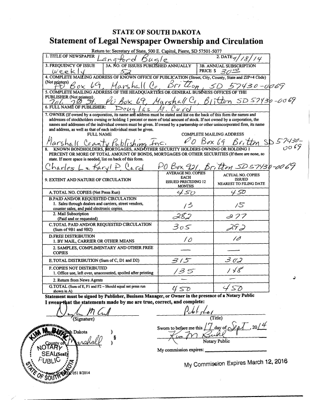 STATE OF SOUTH DAKOTA
Statement of Legal Newspaper Ownership and Circulation
Return to: Secretary of State, 500 E. Capitol, Pierre, SD 57501-5077
1. TITLE OF NEWSPAPER Langford Bugle 2. DATE 9/18/14
3. FREQUENCY OF ISSUE 3A. NO. OF ISSUES PUBLISHED ANNUALLY 3B. ANNUAL SUBSCRIPTION
weekly 52 PRICE $
4. COMPLETE MAILING ADDRESS OF KNOWN OFFICE OF PUBLICATION (Street, City, County, State and ZIP+4 Code)
(Not printers)
PO Box 69, Marshall Co, Britton SD 57430-0069
5. COMPLETE MAILING ADDRESS OF THE HEADQUARTERS OF GENERAL BUSINESS OFFICES OF THE
PUBLISHER (Not printers)
PO Box 69, Marshall Co, Britton SD 57430-0069
6. FULL NAME OF PUBLISHER: Douglas M. Card
7. OWNER (If owned by a corporation, its name and address must be stated and list on the back of this form the names and
addresses of stockholders owning or holding 1 percent or more of total amount of stock. If not owned by a corporation, the
names and addresses of the individual owners must be given. If owned by a partnership or other unincorporated firm, its name
and address, as well as that of each individual must be given.
FULL NAME COMPLETE MAILING ADDRESS
Marshall County Publishing Inc. PO Box 69 Britton SD 57430-0069
8. KNOWN BONDHOLDERS, MORTGAGEES, AND OTHER SECURITY HOLDERS OWNING OR HOLDING 1
PERCENT OR MORE OF TOTAL AMOUNT OF BONDS, MORTGAGES OR OTHER SECURITIES (If there are none, so
state. If more space is needed, list on back of this form.
Charles & Card PO Box Britton SD 57430-0069
9. EXTENT AND NATURE OF CIRCULATION
AVERAGE NO. COPIES
EACH
ISSUED PRECEDING 12
MONTHS
ACTUAL NO. COPIES
ISSUED
NEAREST TO FILING DATE
A. TOTAL NO. COPIES (Net Press Run) 450 450
B. PAID AND/OR REQUESTED CIRCULATION
1. Sales through dealers and carriers, street vendors,
counter sales, and paid electronic copies. 15
2. Mail Subscription
(Paid and/or requested) 282 277
C. TOTAL PAID AND/OR REQUESTED CIRCULATION
(Sum of 9B1 and 9B2) 305 292
D. FREE DISTRIBUTION
1. BY MAIL, CARRIER OR OTHER MEANS 10 10
2. SAMPLES, COMPLIMENTARY AND OTHER FREE
COPIES
E. TOTAL DISTRIBUTION (Sum of C, D1 and D2) 315 302
F. COPIES NOT DISTRIBUTED
1. Office use, left over, unaccounted, spoiled after printing 135 148
2. Return from News Agents
G. TOTAL (Sum of E, F1 and F2 - Should equal net press run
shown in A) 450 450
Statement must be signed by Publisher, Business Manager, or Owner in the presence of a Notary Public
I swear that the statements made by me are true, correct, and complete:
(Signature) (Title)
Dakota
County of Marshall
Sworn to before me this 17 day of Sept, 2014
Notary Public
(Seal)
My commission expires:
My Commission Expires March 12, 2016
NOTARY
SEAL
PUBLIC
STATE OF SOUTH DAKOTA